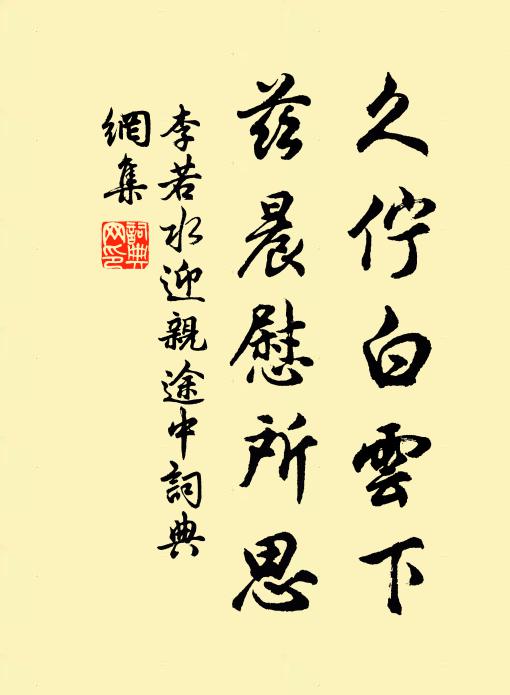 久佇白雲下
茲晨慰所思
李若水迎親途中詞典
網集
詞典
网印